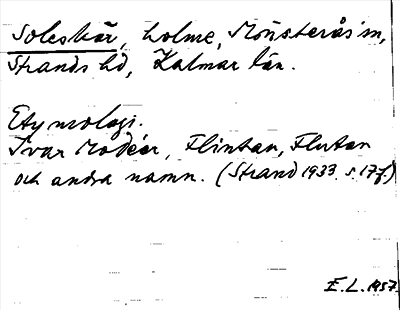 Soleskär, holme, Mönsterås sn,
Strands hd, Kalmar län.
Etymologi.
Ivar Modéer, Flintan, Flutan
och andra namn. (Strand 1933. s. 17 f.)
E. L. 1957.